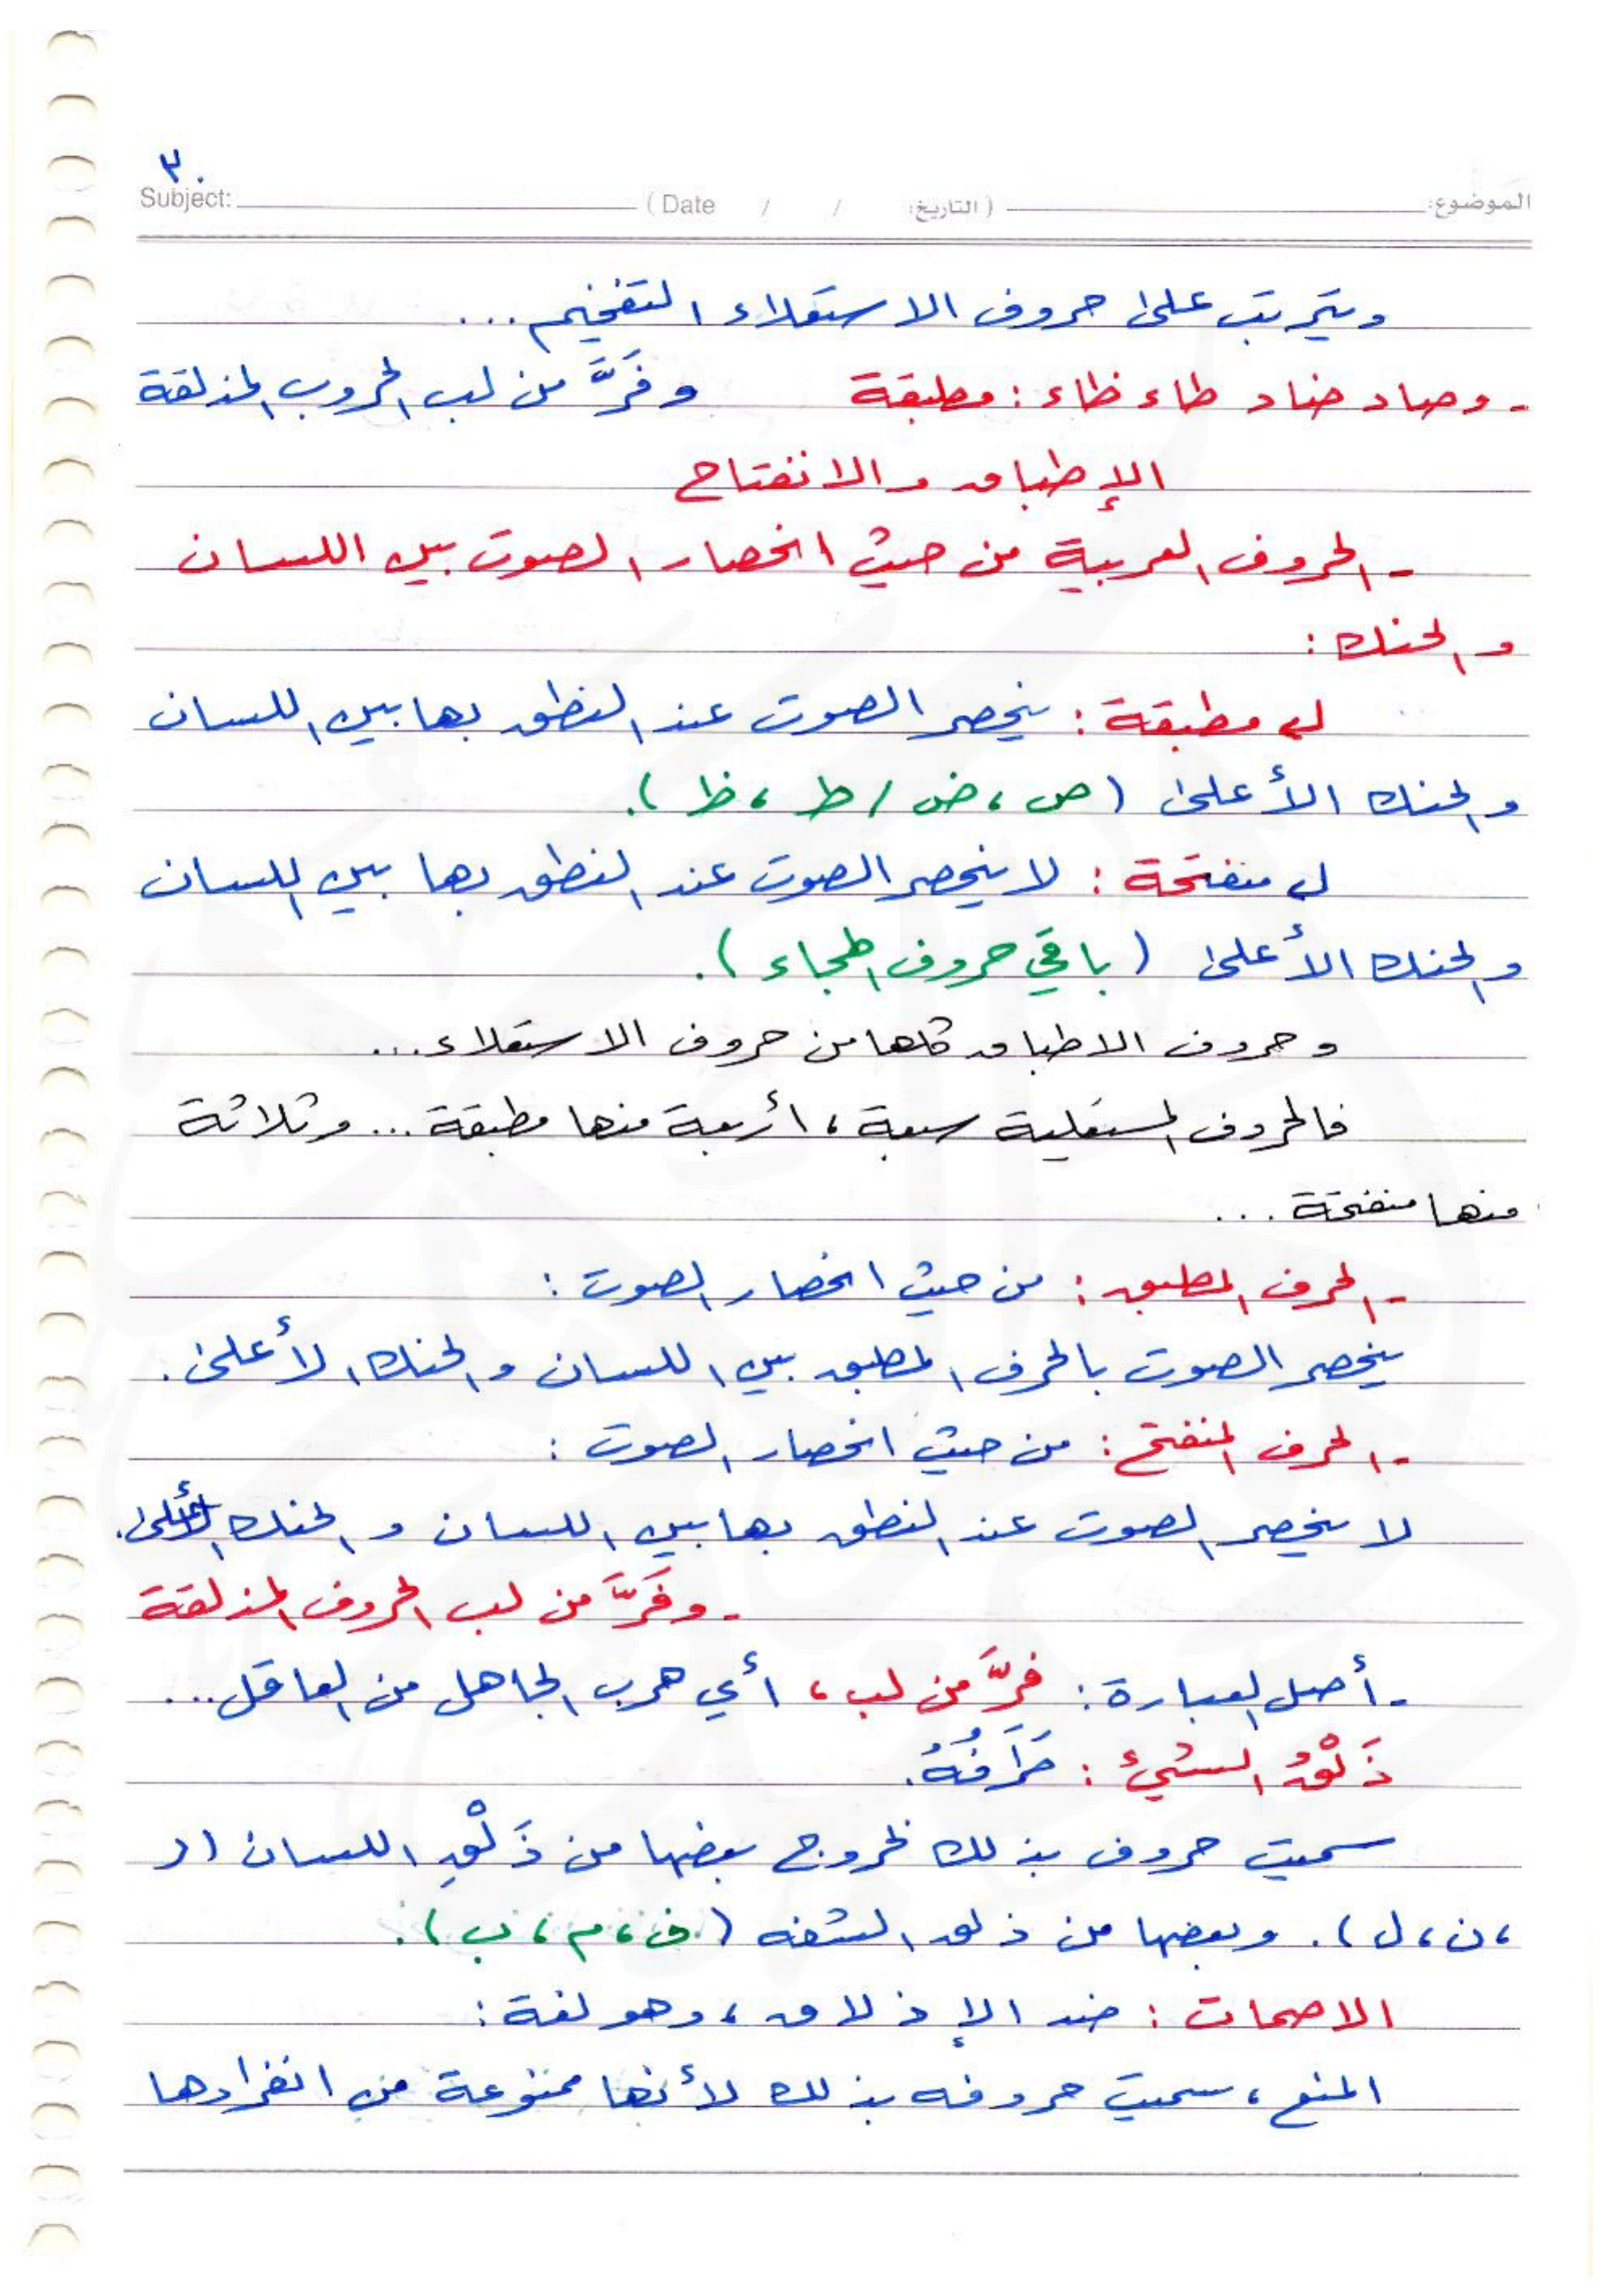 ٣٠
الموضوع: (التاريخ: / / Date) Subject:
ويترتب على حروف الاستعلاء التفخيم...
- وصاد ضاد طاء ظاء: مطبقة وفَرَّ من لب الحروب المذلقة
الإطباق والانفتاح
- الحروف العربية من حيث انحصار الصوت بين اللسان
والحنك:
مطبقة: ينحصر الصوت عند النطق بها بين اللسان
والحنك الأعلى (ص، ض / ط، ظ).
منفتحة: لا ينحصر الصوت عند النطق بها بين اللسان
والحنك الأعلى (باقي حروف الهجاء).
وحروف الاطباق كلها من حروف الاستعلاء...
فالحروف المستعلية سبعة، أربعة منها مطبقة... وثلاثة
منها منفتحة...
- الحرف المطبق: من حيث انحصار الصوت:
ينحصر الصوت بالحرف المطبق بين اللسان والحنك الأعلى.
- الحرف المنفتح: من حيث انحصار الصوت:
لا ينحصر الصوت عند النطق بها بين اللسان والحنك الأعلى.
- وفَرَّ من لب الحروف المذلقة
- أصل العبارة: فرَّ من لب، أي هرب الجاهل من العاقل...
ذَلْقُ الشيء: طَرَفُهُ.
سميت حروف بذلك لخروج بعضها من ذَلْقِ اللسان (ر
، ن، ل). وبعضها من ذلق الشفه (ف، م، ب).
الاصمات: ضد الإذلاق، وهو لغة:
المنع، سميت حروفه بذلك لأنها ممنوعة من انفرادها